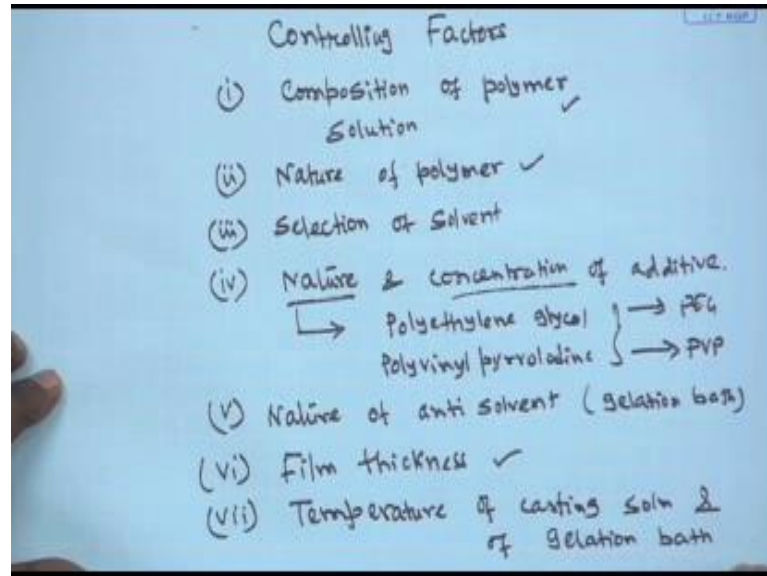 Controlling Factors
(i) Composition of polymer ✓
Solution
(ii) Nature of polymer ✓
(iii) Selection of Solvent
(iv) Nature & concentration of additive.
Polyethylene glycol } → PEG
Polyvinyl pyrrolodine } → PVP
(v) Nature of anti solvent (gelation bath)
(vi) Film thickness ✓
(vii) Temperature of casting soln &
of gelation bath